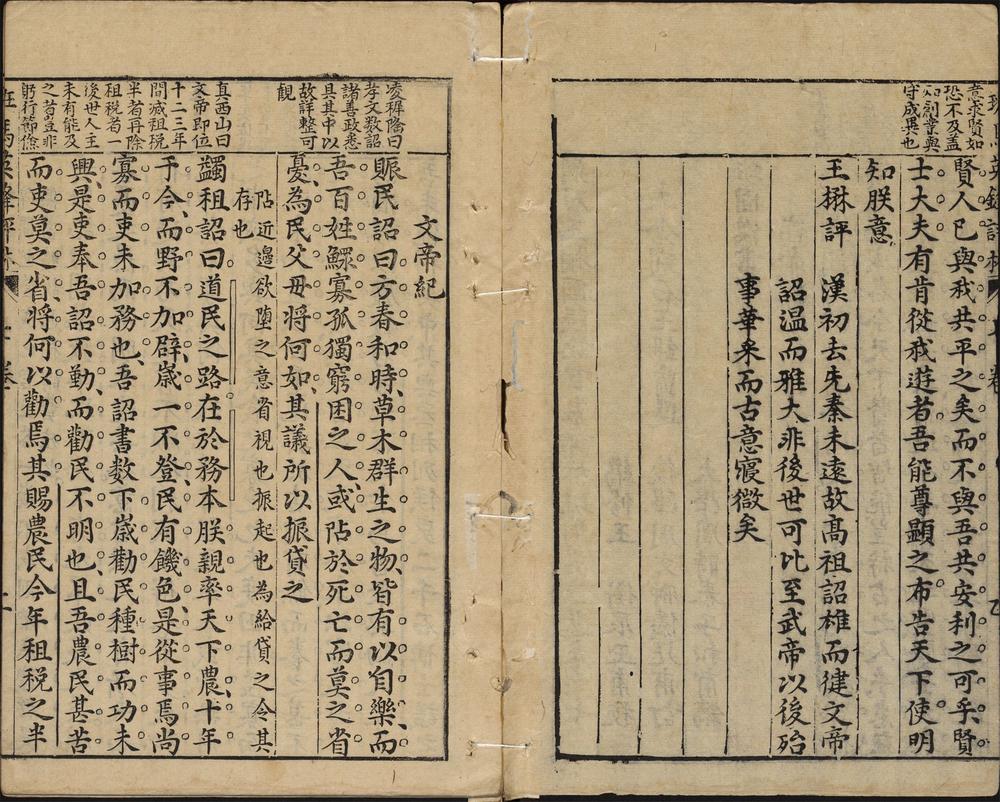 意求賢如
恐不及蓋
知創業與
守成異也
賢人已與我共平之矣而不與吾共安利之可乎賢
士大夫有肯從我遊者吾能尊顯之布告天下使明
知朕意
王楙評
漢初去先秦未遠故高祖詔雄而健文帝
詔溫而雅大非後世可比至武帝以後殆
事華采而古意寖微矣
凌稚隆曰
孝文數詔
諸善政悉
具其中以
故詳整可
觀
文帝紀
賑民詔曰方春和時草木群生之物皆有以自樂而
吾百姓鰥寡孤獨窮困之人或阽於死亡而莫之省
憂為民父母將何如其議所以振貸之
阽近邊欲墮之意省視也振起也為給貸之令其
存也
真西山曰
文帝即位
十二三年
間減租稅
半者再除
租稅者一
後世人主
未有能及
之者豈非
躬行節儉
蠲租詔曰道民之路在於務本朕親率天下農十年
于今而野不加辟歲一不登民有饑色是從事焉尚
寡而吏未加務也吾詔書數下歲勸民種樹而功未
興是吏奉吾詔不勤而勸民不明也且吾農民甚苦
而吏莫之省將何以勸焉其賜農民今年租稅之半